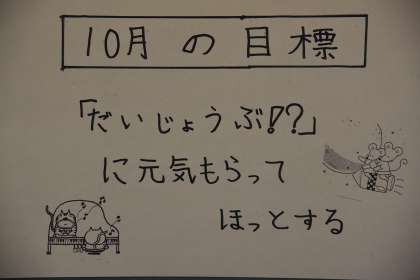 10月の目標
「だいじょうぶ!?」
に元気もらって
ほっとする